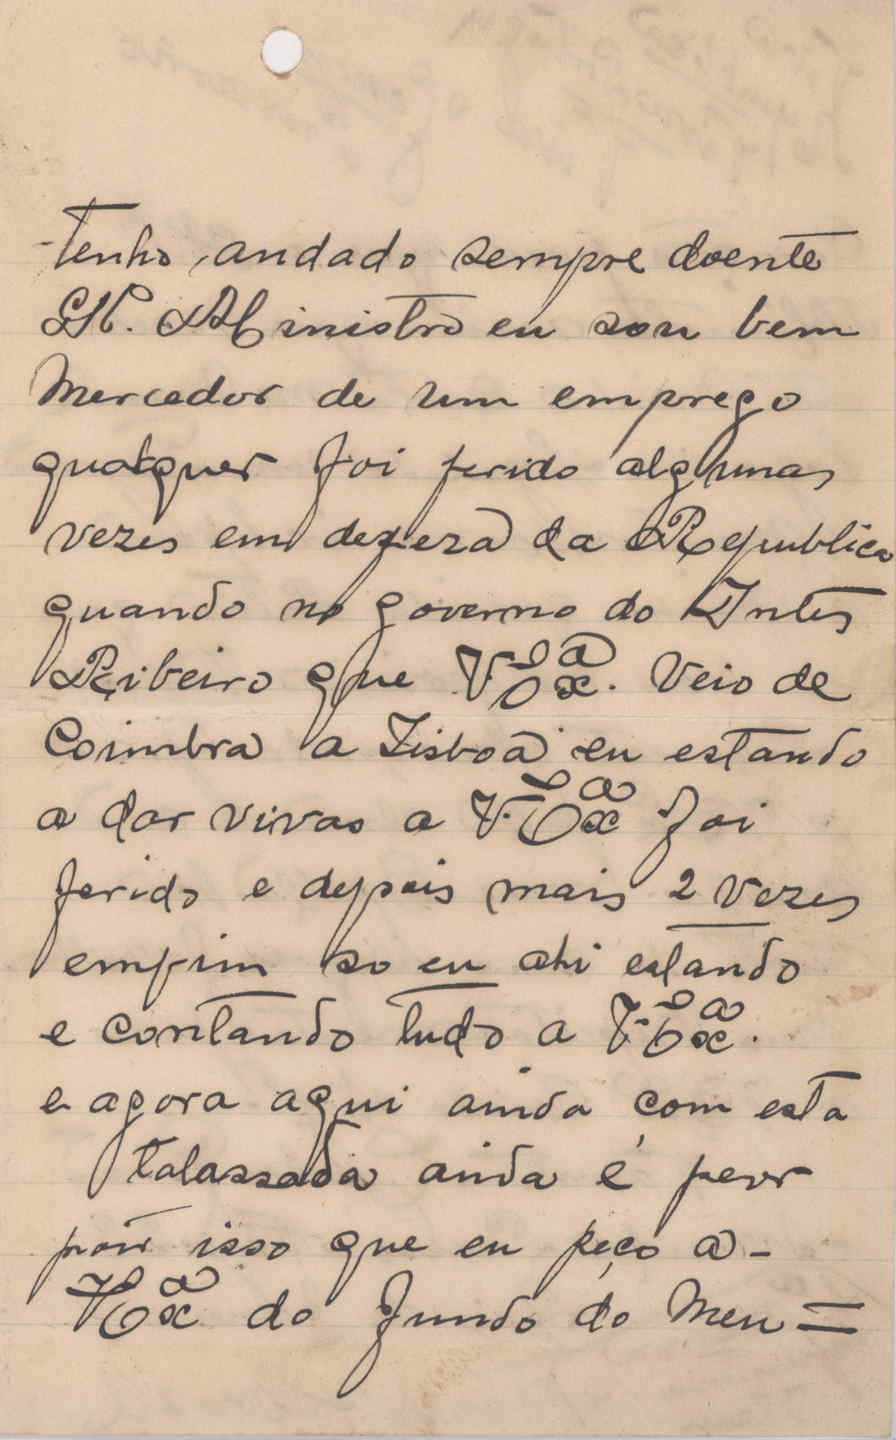 tenho, andado sempre doente
Sr. Ministro eu sou bem
Mercedor de um emprego
qualquer foi ferido algumas
vezes em defeza da Republica
quando no governo do Intes
Ribeiro que V. Exª. Veio de
Coimbra a Lisboa eu estando
a dar vivas a V. Exª foi
ferido e depois mais 2 vezes
emfim so eu ahi estando
e contando tudo a V. Exª.
e agora aqui ainda com esta
talassada ainda é peor
por isso que eu peço a -
V Exª do fundo do Meu =